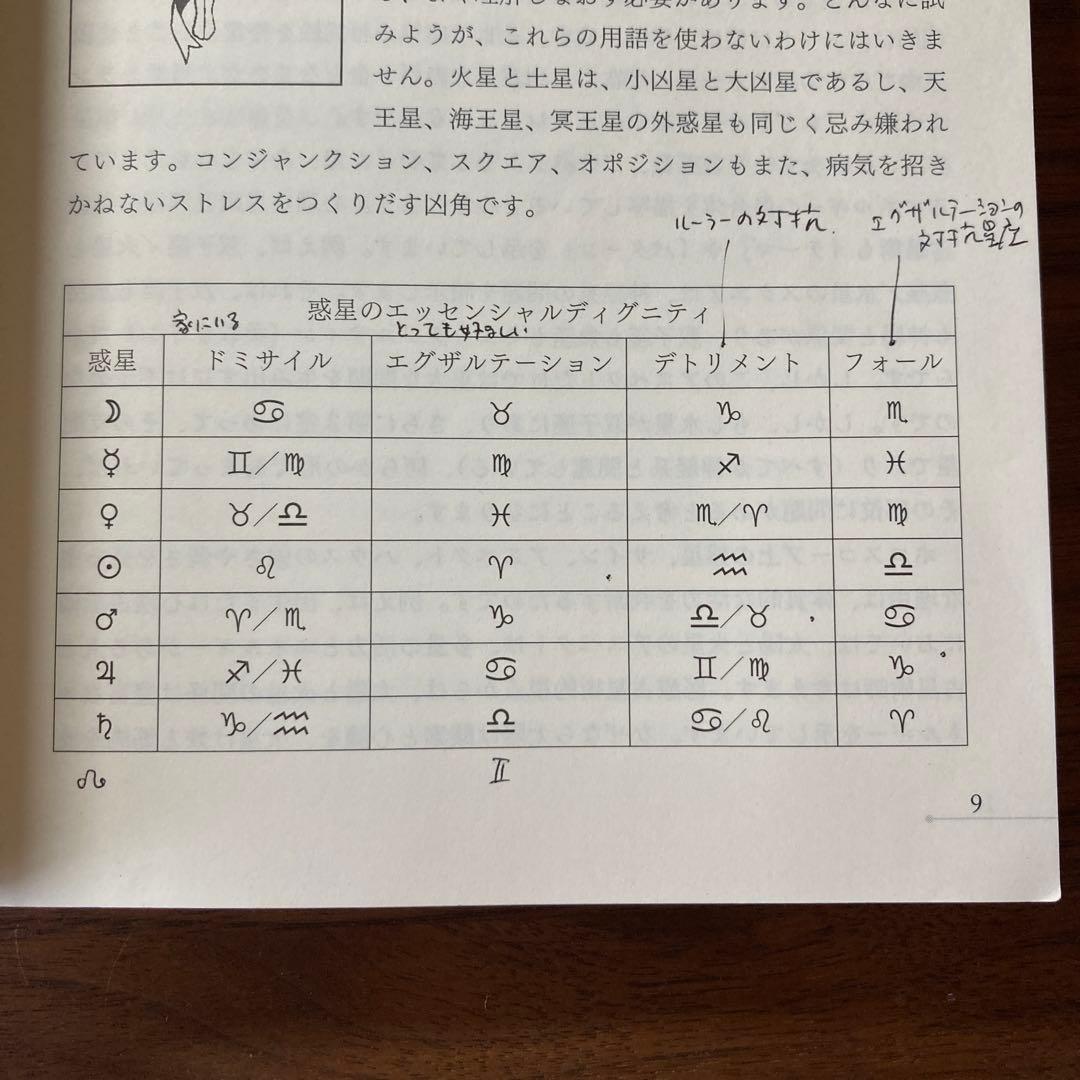 みようが、これらの用語を使わないわけにはいきま
せん。火星と土星は、小凶星と大凶星であるし、天
王星、海王星、冥王星の外惑星も同じく忌み嫌われ
ています。コンジャンクション、スクエア、オポジションもまた、病気を招き
かねないストレスをつくりだす凶角です。
ルーラーの対抗
エグザルテーションの
対抗星座
惑星のエッセンシャルディグニティ
家にいる
とっても好ましい
惑星 ドミサイル エグザルテーション デトリメント フォール
☽ ♋ ♉ ♑ ♏
☿ ♊/♍ ♍ ♐ ♓
♀ ♉/♎ ♓ ♏/♈ ♍
☉ ♌ ♈ ♒ ♎
♂ ♈/♏ ♑ ♎/♉ ♋
♃ ♐/♓ ♋ ♊/♍ ♑
♄ ♑/♒ ♎ ♋/♌ ♈
☊ ♊
9